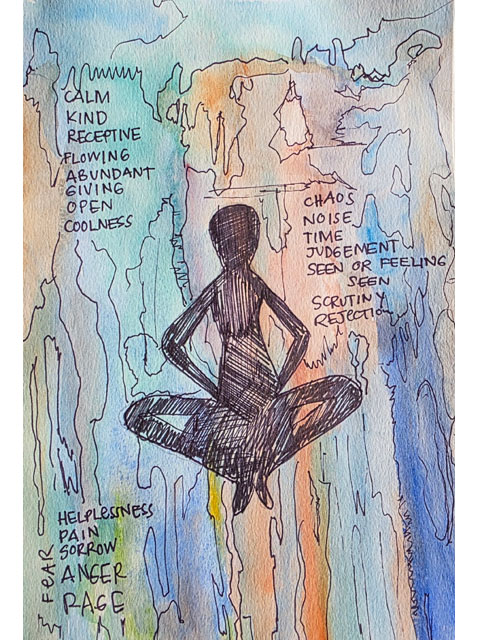 CALM
KIND
RECEPTIVE
FLOWING
ABUNDANT
GIVING
OPEN
COOLNESS
CHAOS
NOISE
TIME
JUDGEMENT
SEEN OR FEELING
SEEN
SCRUTINY
REJECTION
HELPLESSNESS
PAIN
SORROW
ANGER
RAGE
FEAR